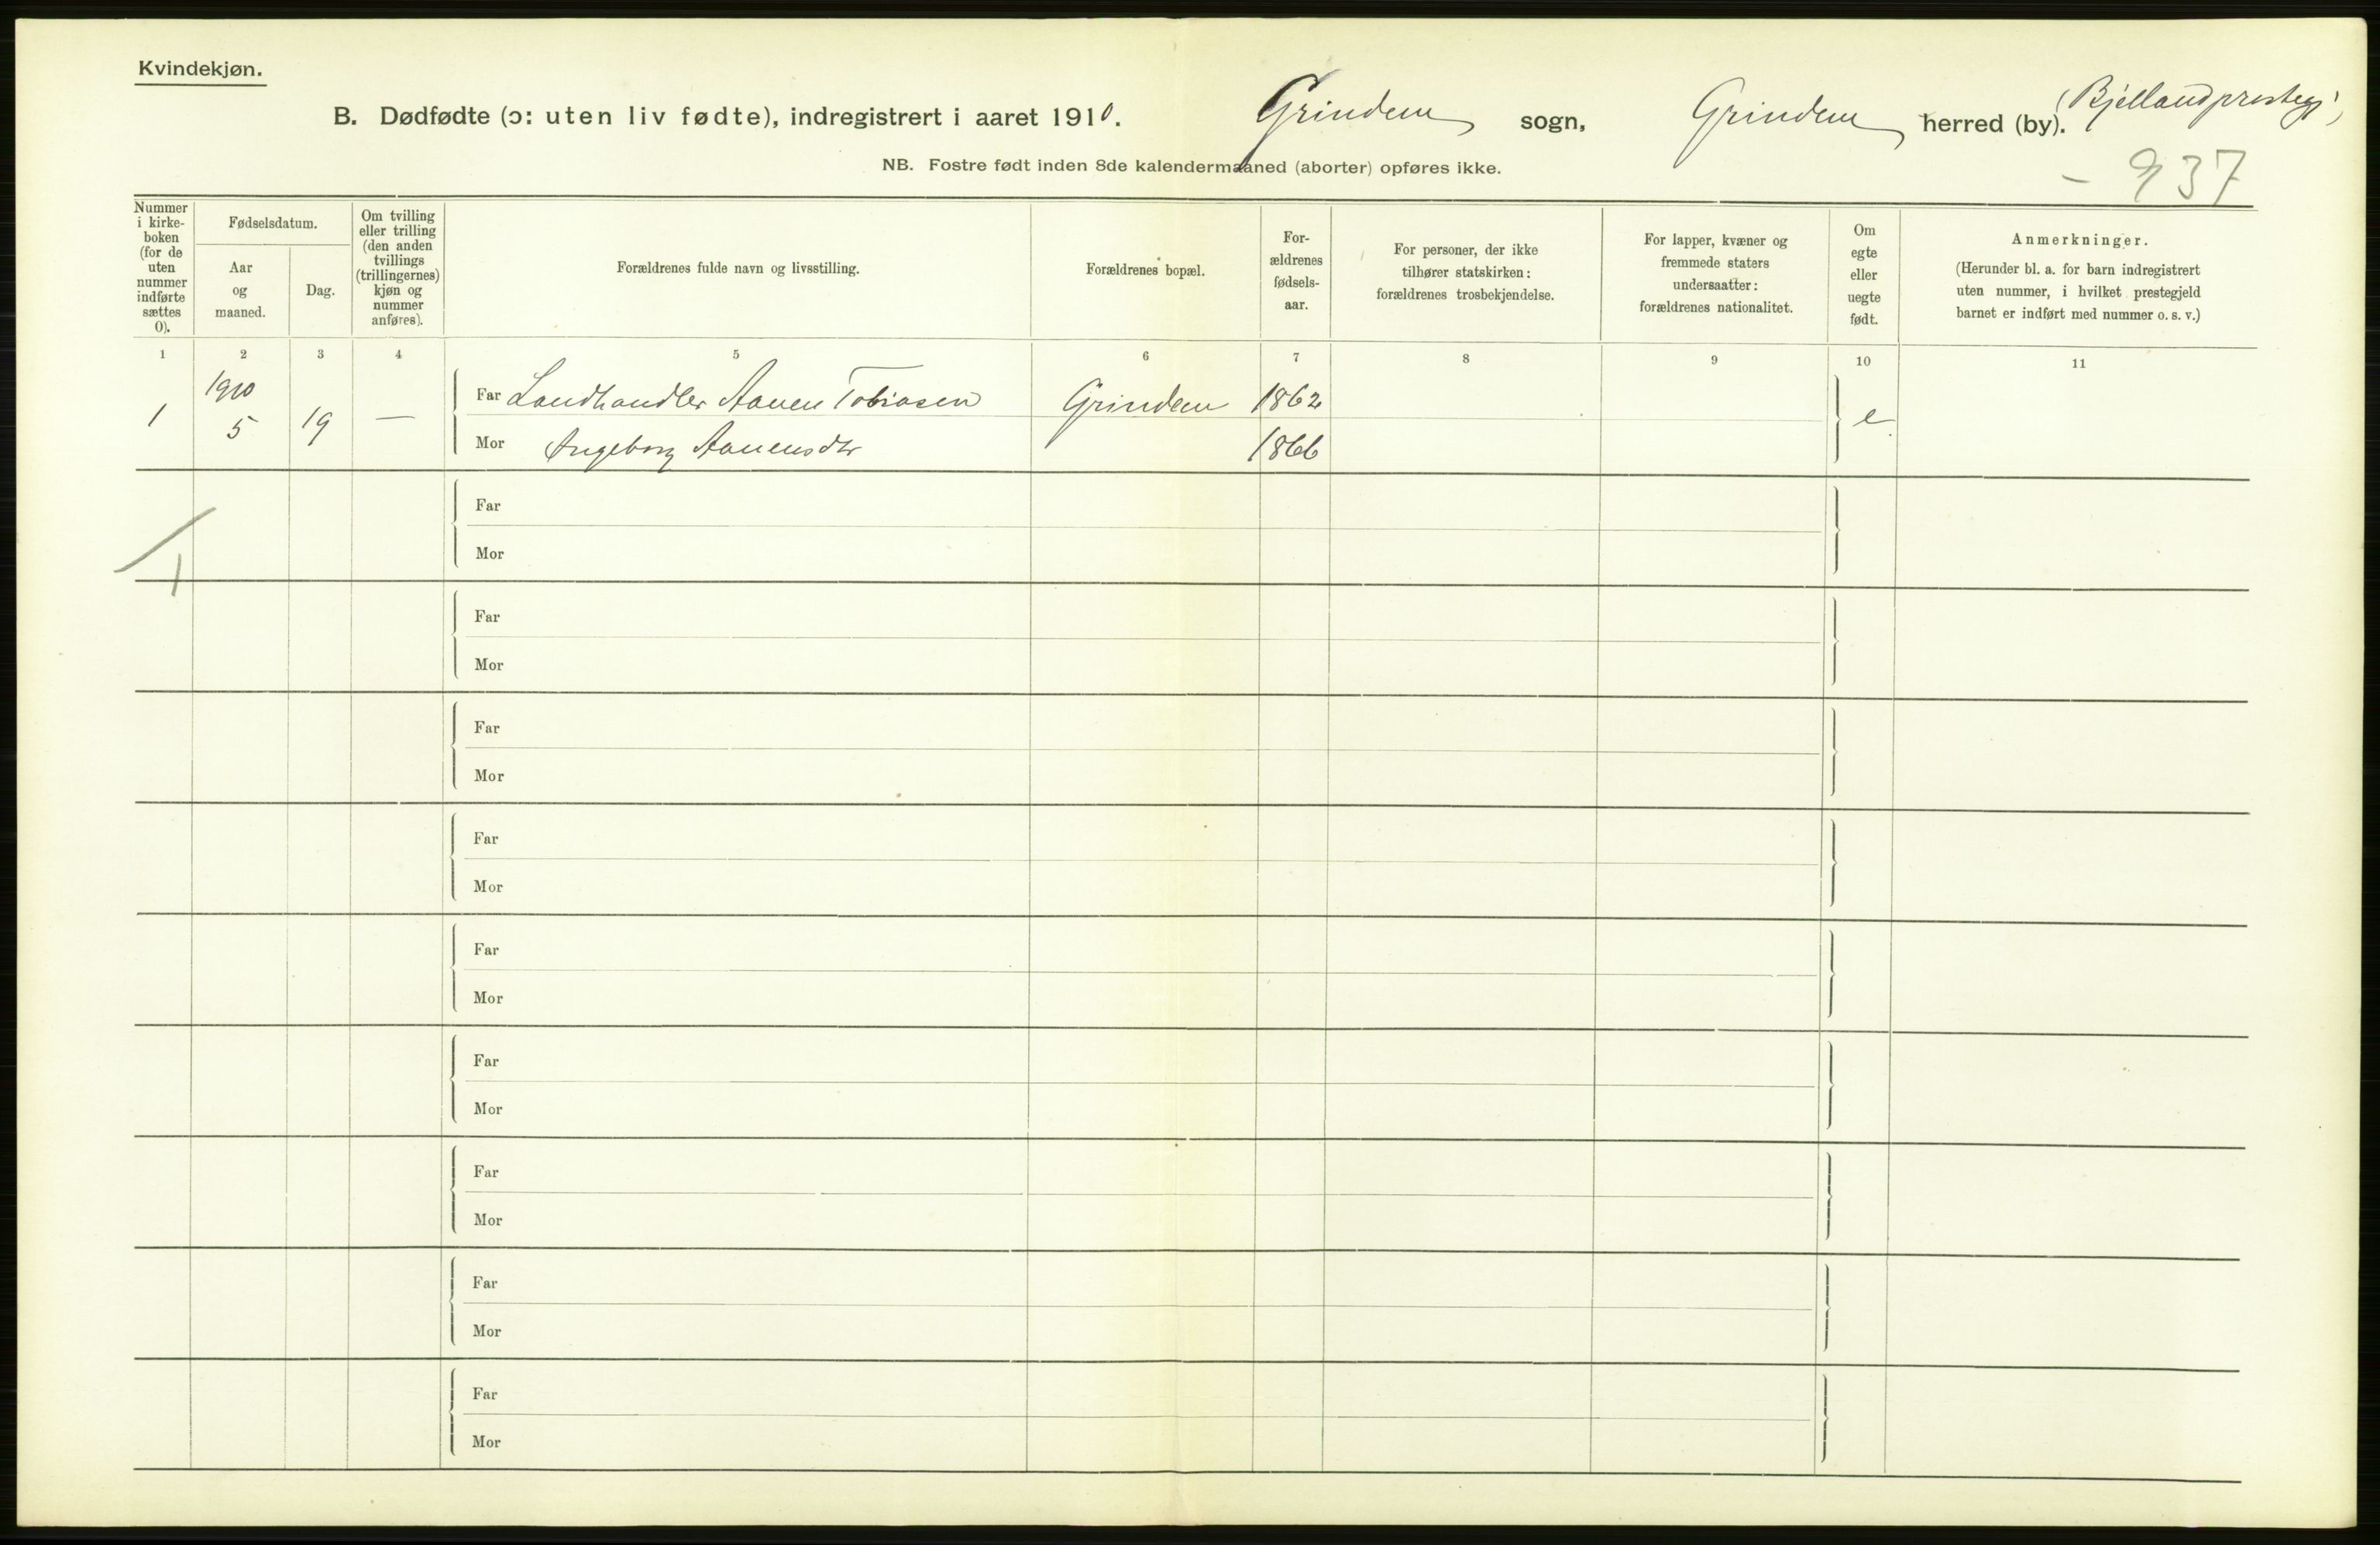 Kvindekjøn.
B. Dødfødte (ɔ: uten liv fødte), indregistrert i aaret 1910. Grindem sogn, Grindem herred (by). (Bjelland prestegj.)
NB. Fostre født inden 8de kalendermaaned (aborter) opføres ikke.
937
Nummer
i kirke-
boken
(for de
uten
nummer
indførte
sættes
0).
Fødselsdatum.
Aar
og
maaned.
Dag.
Om tvilling
eller trilling
(den anden
tvillings
(trillingernes)
kjøn og
nummer
anføres).
Forældrenes fulde navn og livsstilling.
Forældrenes bopæl.
For-
ældrenes
fødsels-
aar.
For personer, der ikke
tilhører statskirken:
forældrenes trosbekjendelse.
For lapper, kvæner og
fremmede staters
undersaatter:
forældrenes nationalitet.
Om
egte
eller
uegte
født.
Anmerkninger.
(Herunder bl. a. for barn indregistrert
uten nummer, i hvilket prestegjeld
barnet er indført med nummer o. s. v.)
1 2 3 4 5 6 7 8 9 10 11
1910
1 5 19 — Far Landhandler Aanen Tobiasen Grindem 1862 e.
Mor Ingeborg Aanensdtr 1866
Far
Mor
1
Far
Mor
Far
Mor
Far
Mor
Far
Mor
Far
Mor
Far
Mor
Far
Mor
Far
Mor